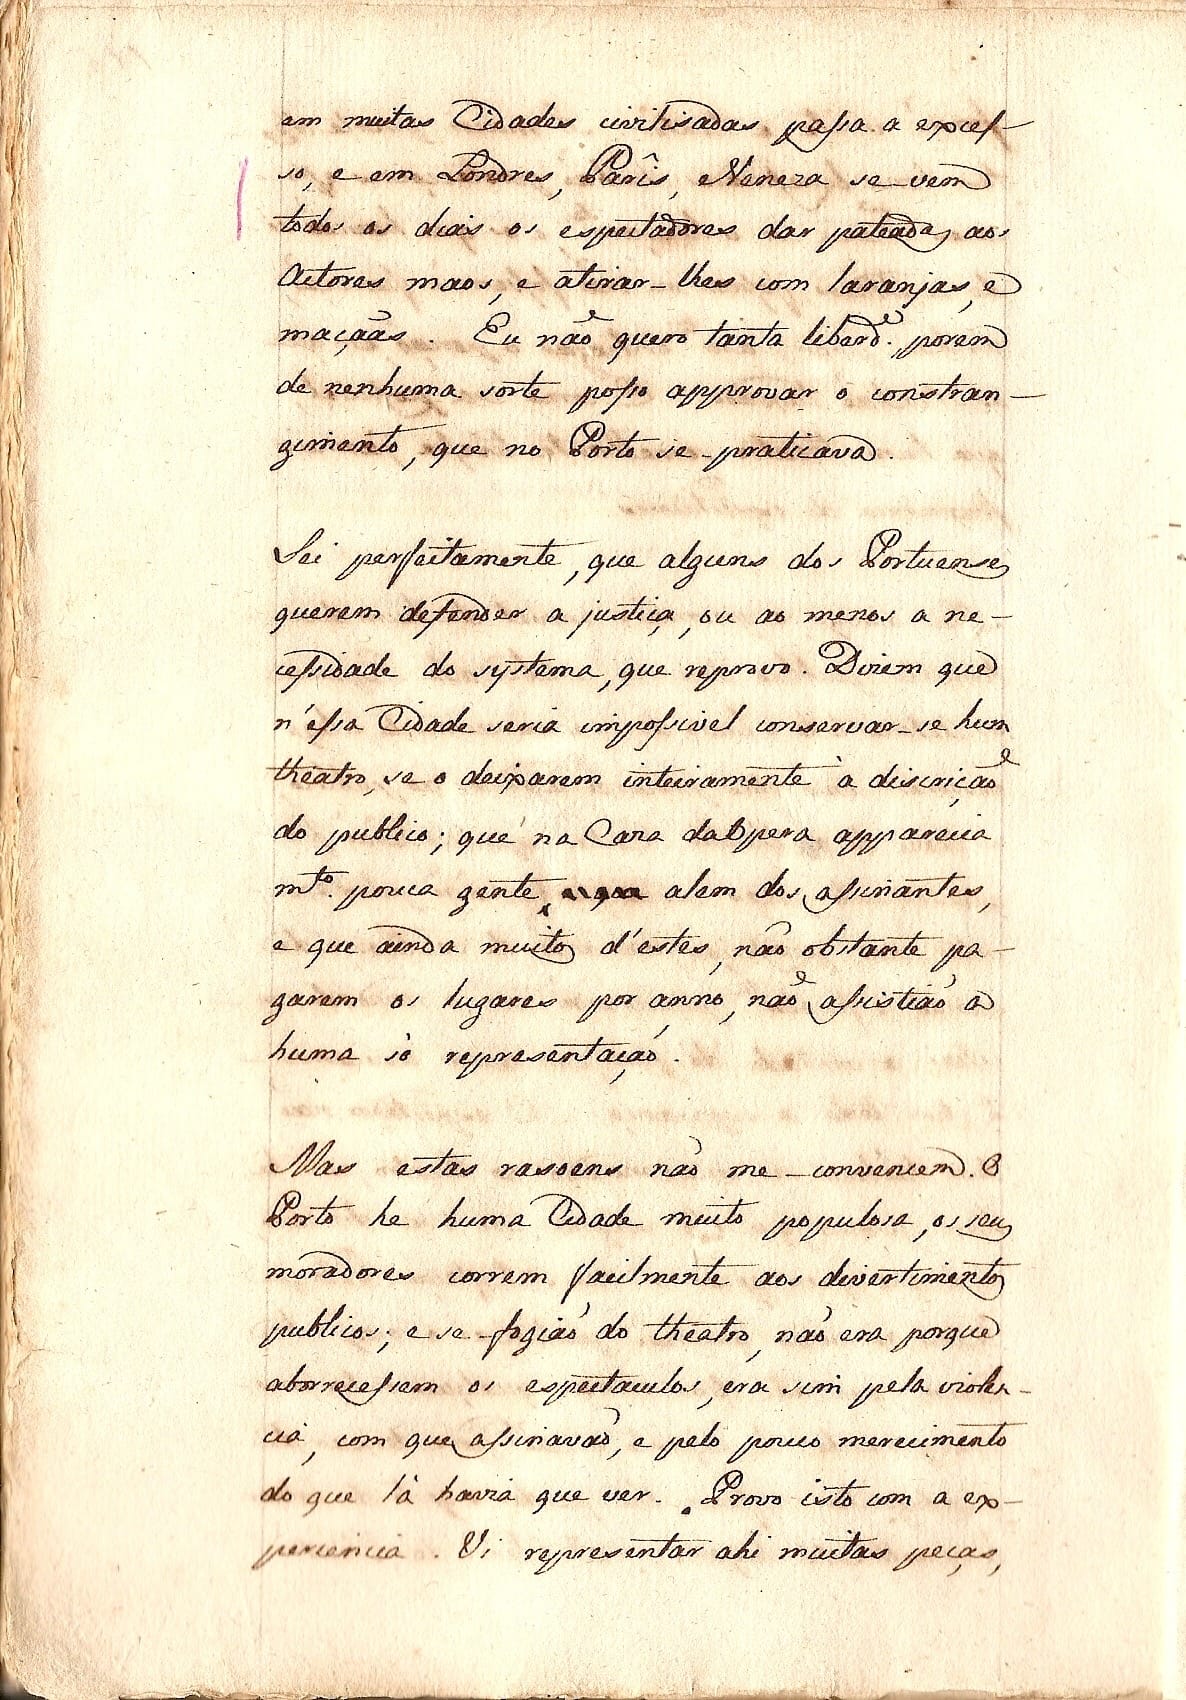 em muitas Cidades civilisadas passa a exces-
so, e em Londres, Parîs, e Veneza se vem
todos os dias os espectadores dar pateadas aos
Actores maos, e atirar-lhes com laranjas, e
maçãas. Eu não quero tanta liberd.e, porem
de nenhuma sorte posso approvar o constran-
gimento, que no Porto se praticava.
Sei perfeitamente, que alguns dos Portuenses
querem defender a justiça, ou ao menos a ne-
cessidade do systema, que reprovo. Diziem que
n'essa Cidade seria impossivel conservar-se hum
theatro, se o deixarem inteiramente à discrição
do publico; que na Caza da Opera apparecia
m.to pouca gente, alem dos assinantes,
e que ainda muitos d'estes, não obstante pa-
garem os lugares por anno, não assistião a
huma só representação.
Mas estas rasoens não me convencem. O
Porto he huma Cidade muito populosa, os seus
moradores correm facilmente aos divertimentos
publicos; e se fogião do theatro, não era porque
aborrecessem os espectaculos, era sim pela violen-
cia, com que assinavão, e pelo pouco merecimento
do que lá havia que ver. Provo isto com a ex-
periencia. Vi representar ahi muitas peças,